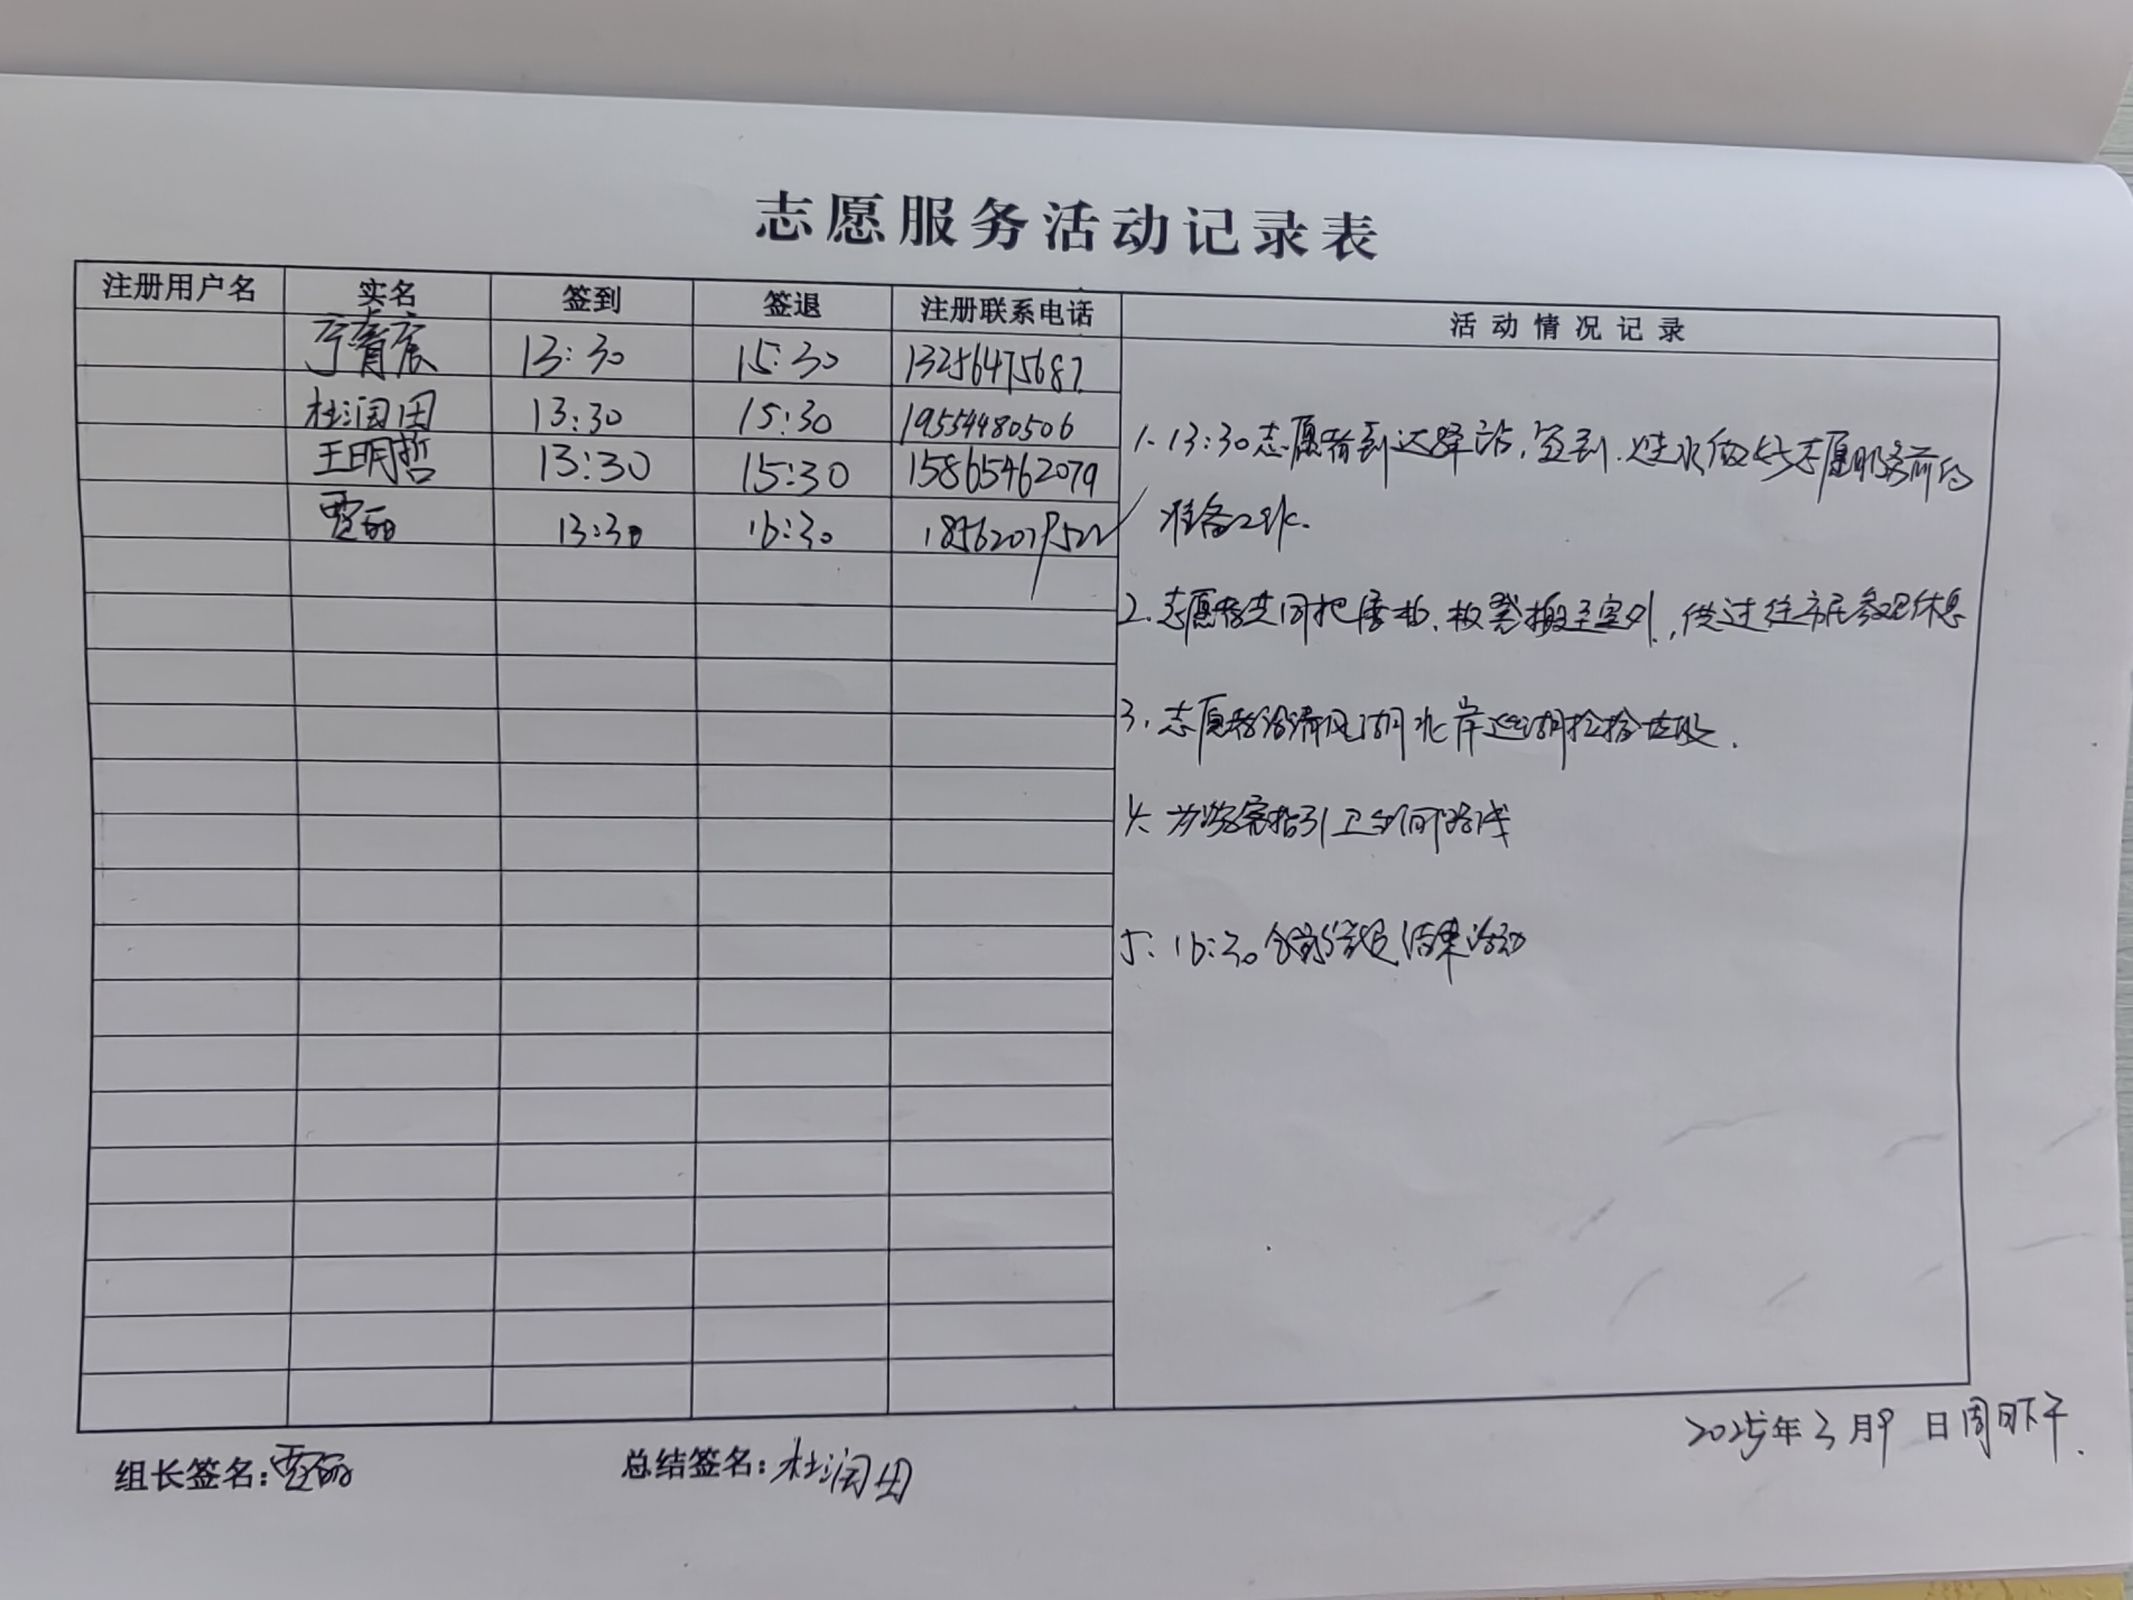 志愿服务活动记录表
注册用户名 实名 签到 签退 注册联系电话 活动情况记录
13:30 15:30 13256475687
杜润田 13:30 15:30 19554480506
王明哲 13:30 15:30 15865462079
贾丽 13:30 16:30 18562079522
1、13:30志愿者到达驿站,签到、烧水做好志愿服务前的
准备工作.
2.志愿者共同把展板、板凳搬至室外,供过往市民参观休息
3、志愿者沿清风湖北岸巡湖捡拾垃圾.
4、为游客指引卫生间路线
5、16:30全部签退结束活动
2025年3月9日周日下午.
组长签名:贾丽 总结签名:杜润田